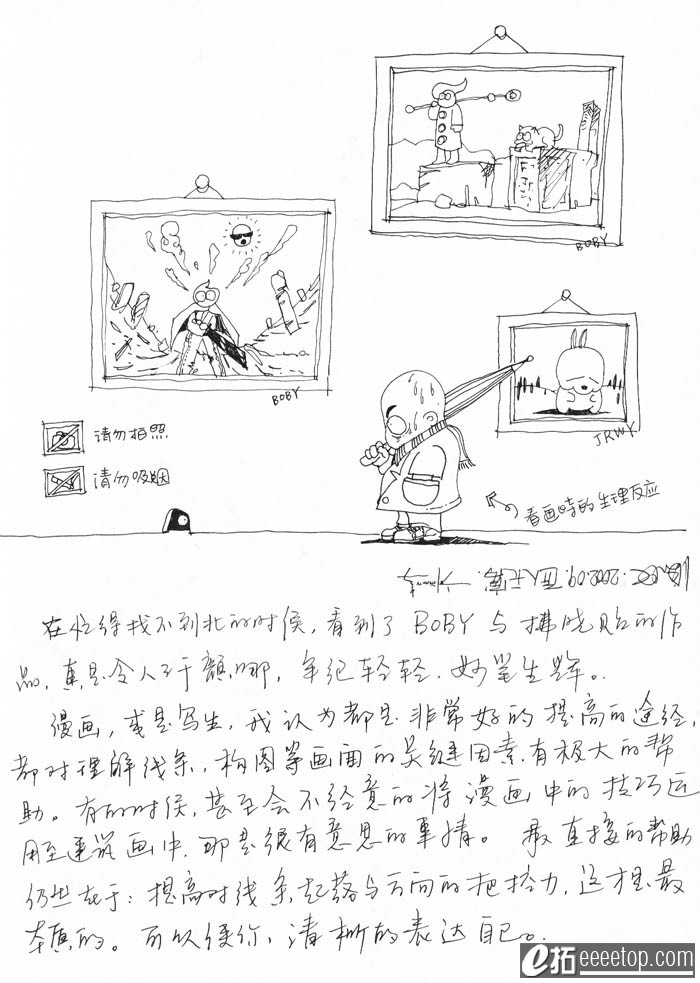 BOBY
BOBY
JRWY
请勿拍照
请勿吸烟
看画时的生理反应
2002.09.
在忙得找不到北的时候，看到了BOBY与拂晓贻的作
品，真是令人汗颜哪，年纪轻轻，妙笔生辉。
漫画，或是写生，我认为都是非常好的提高的途径，
都对理解线条，构图等画面的关键因素有极大的帮
助。有的时候，甚至会不经意的将漫画中的技巧运
用至建筑画中，那是很有意思的事情。最直接的帮助
仍然在于：提高对线条起落与方向的把控力，这才是最
本质的。可以使你，清晰的表达自己。
e拓 eeeetop.com